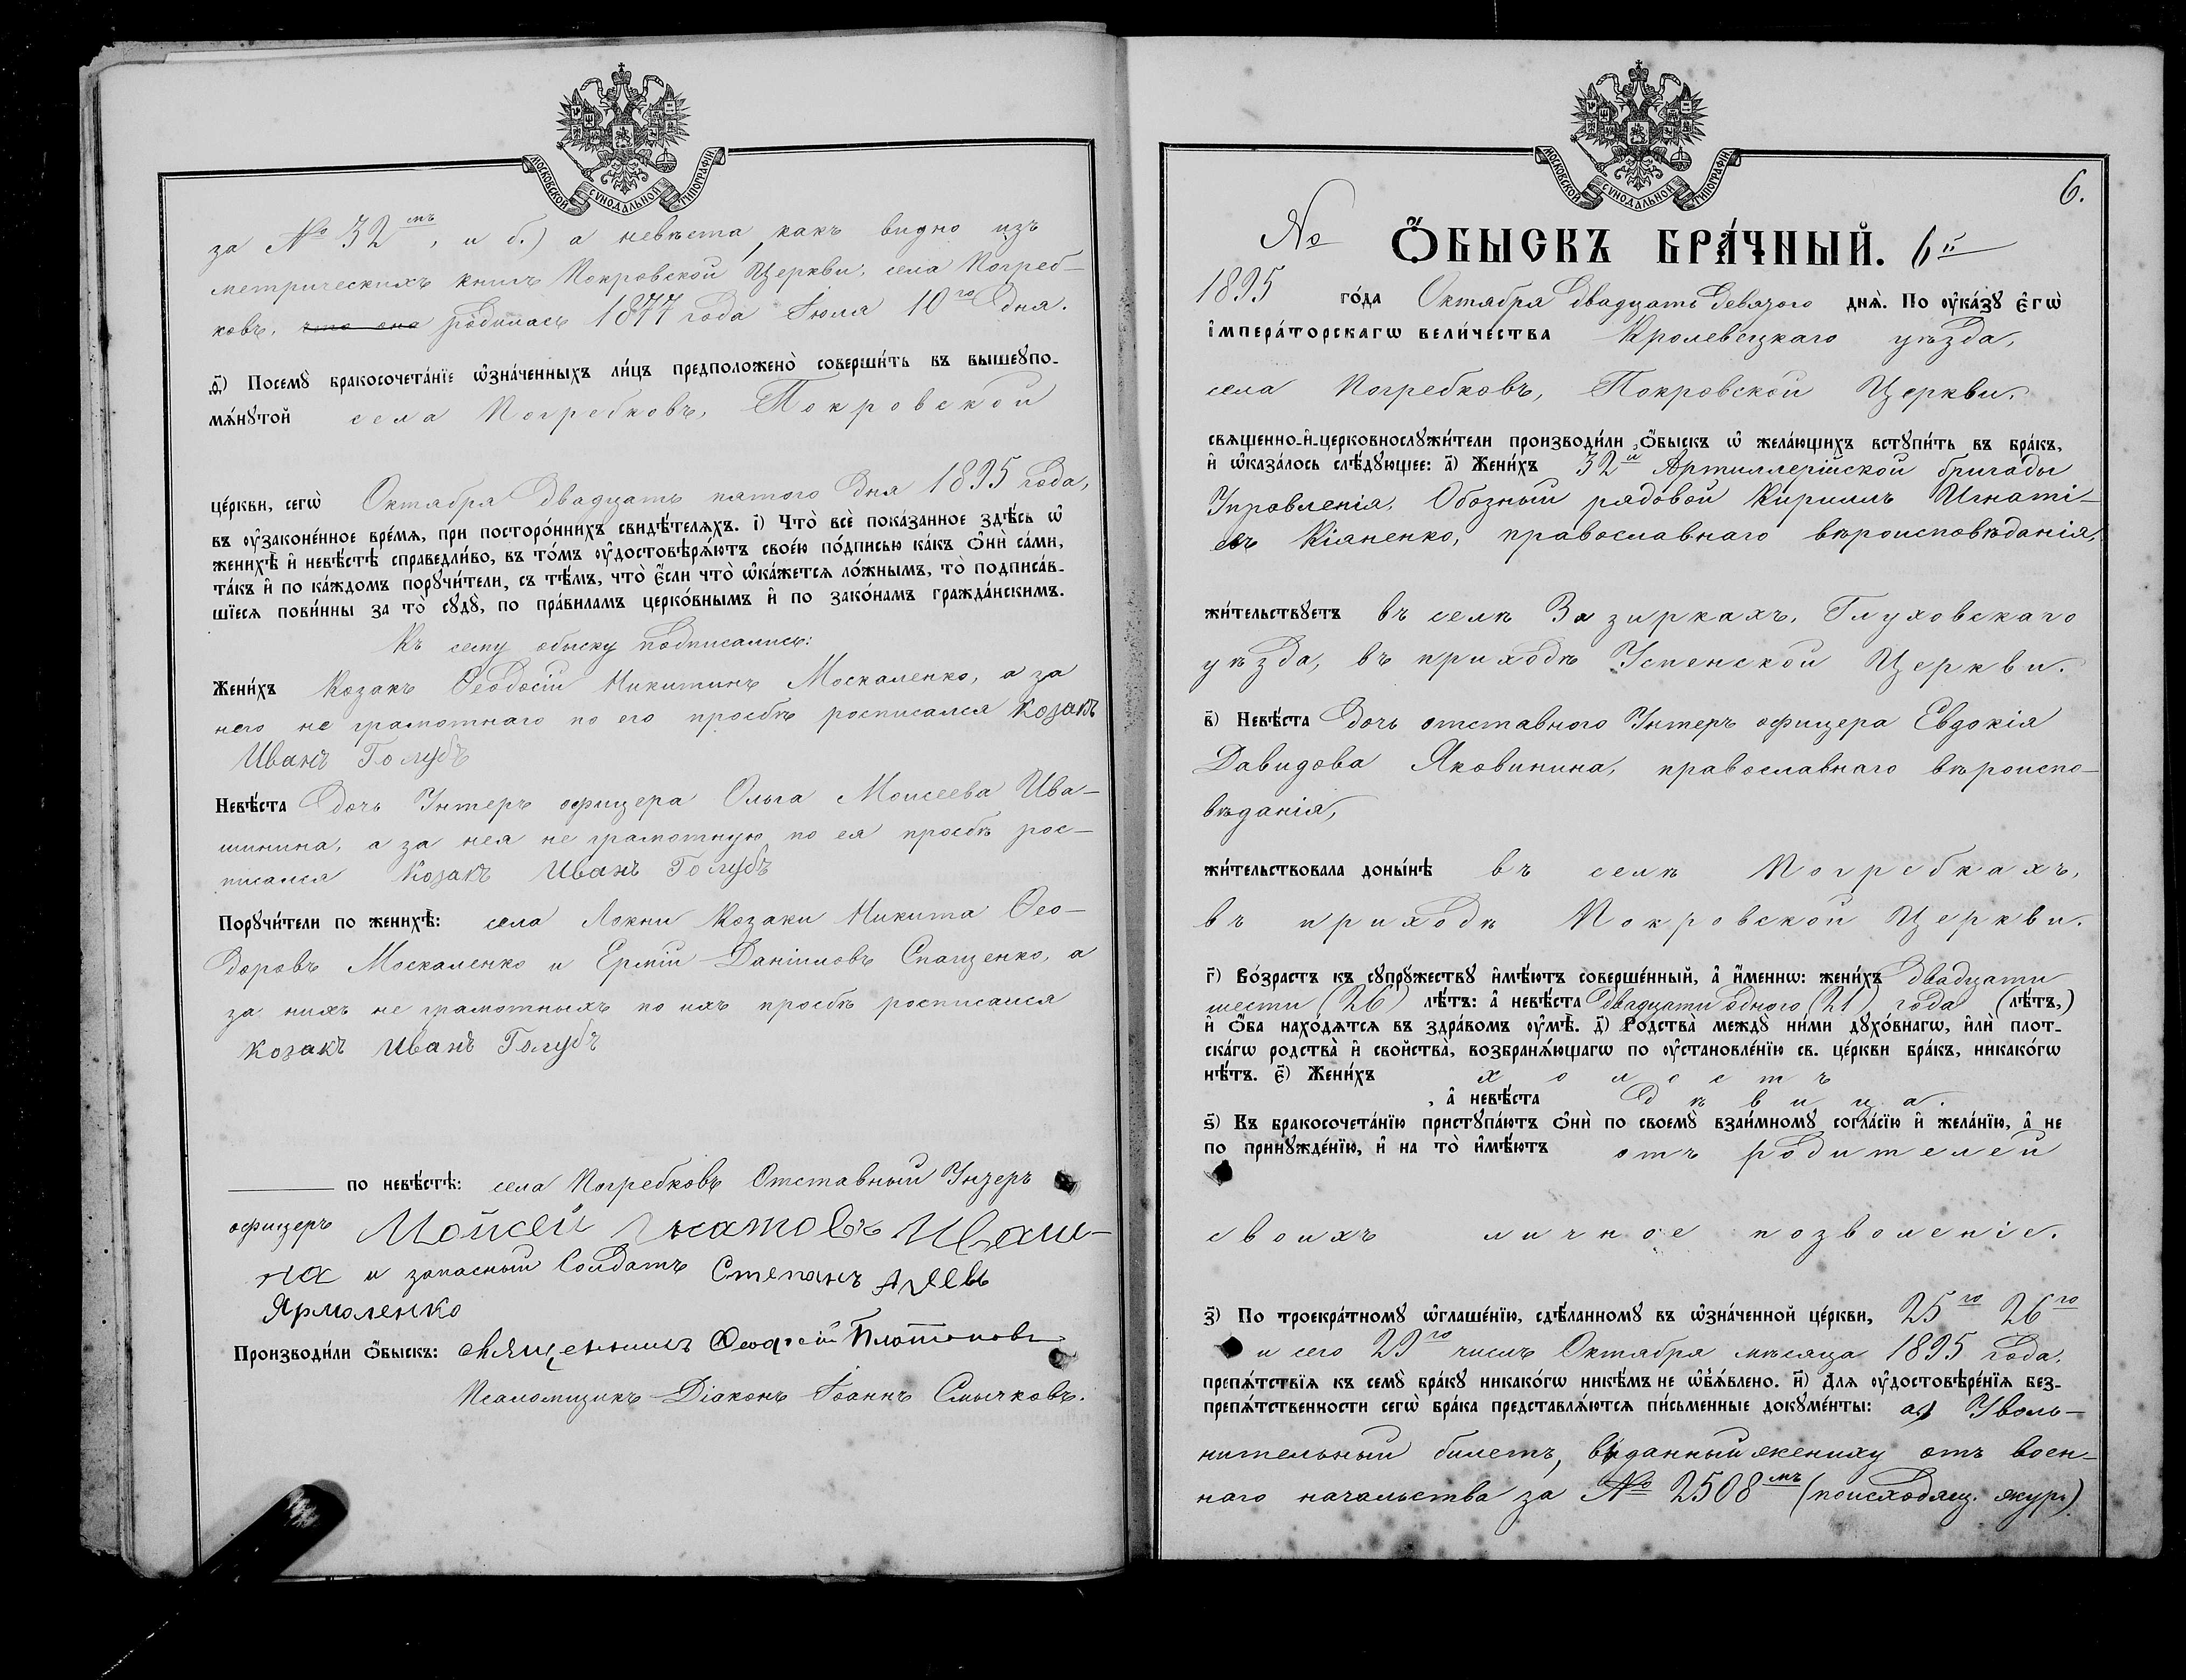 МОСКОВСКОЙ СУНОДАЛЬНОЙ ТИПОГРАФІИ
за № 32мъ, и б.) а невѣста, какъ видно изъ
метрическихъ книгъ Покровской Церкви, села Погреб-
ковъ, что она родилась 1877 года Іюля 10го дня.
д҃і) Посемꙋ̀ бракосочета́нїе ѡ҆зна́ченныхъ ли́цъ предположено̀ соверши́ть въ вышеꙋпо-
мѧ́нꙋтой села Погребковъ, Покровской
це́ркви, сегѡ̀ Октября двадцать пятого дня 1895 года,
въ оу҆законе́нное вре́мѧ, при посторо́ннихъ свидѣ́телѧхъ. і҃) Что̀ всѐ пока́занное здѣ́сь ѡ҆
женихѣ̀ и҆ невѣ́стѣ справедли́во, въ то́мъ оу҆достовѣрѧ́ютъ свое́ю по́дписью ка́къ ѻ҆нѝ са́ми,
та́къ и҆ по ка́ждомъ порꙋчи́тели, съ тѣ́мъ, что̀ є҆́сли что̀ ѡ҆ка́жетсѧ ло́жнымъ, то̀ подписа́в-
шїесѧ пови́нны за то̀ сꙋдꙋ̀, по пра́виламъ церко́внымъ и҆ по зако́намъ гражда́нскимъ.
Къ сему обыску подписались:
Жени́хъ Козакъ Ѳеодосій Никитинъ Москаленко, а за
него не грамотнаго по его просьбѣ росписался Козакъ
Иванъ Голубъ
Невѣ́ста дочь Унтеръ офицера Ольга Моисеева Ива-
шинина, а за нея не грамотную по ея просьбѣ рос-
писался Козакъ Иванъ Голубъ
Порꙋчи́тели по женихѣ̀: села Локни Козаки Никита Ѳео-
доровъ Москаленко и Ермій Даніиловъ Спащенко, а
за нихъ не грамотныхъ по ихъ просьбѣ росписался
Козакъ Иванъ Голубъ
по невѣ́стѣ: села Погребковъ Отставный Унтеръ
офицеръ Мойсей Ивши-
на и запасный Солдатъ Степанъ
Ярмоленко
Производи́ли ѻ҆́быскъ: священникъ Георгій Платоновъ
Псаломщикъ Діаконъ Іоаннъ Смычковъ.
МОСКОВСКОЙ СУНОДАЛЬНОЙ ТИПОГРАФІИ
6.
№ Ѻ҆́БЫСКЪ БРА́ЧНЫЙ. 6й
1895 го́да Октября двадцать девятого днѧ̀. По оу҆ка́зꙋ є҆гѡ̀
і҆мпера́торскагѡ вели́чества Кролевецкаго уѣзда,
села Погребковъ, Покровской Церкви.
свѧщенно-и҆-церковнослꙋжи́тели производи́ли ѻ҆́быскъ ѡ҆ жела́ющихъ встꙋпи́ть въ бра́къ,
и҆ ѡ҆каза́лось слѣ́дꙋющее: а҃) Жени́хъ 32й Артиллерійской бригады
Управленія, Обозный рядовой Кириллъ Игнаті-
евъ Кіяненко, православнаго вѣроисповѣданія,
жи́тельствꙋетъ въ селѣ Зазиркахъ, Глуховскаго
уѣзда, въ приходѣ Успенской Церкви.
в҃) Невѣ́ста дочь отставного Унтеръ офицера Евдокія
Давидова Яковинина, православнаго вѣроиспо-
вѣданія,
жи́тельствовала доны́нѣ въ селѣ Погребкахъ,
въ приходѣ Покровской Церкви.
г҃) Во́зрастъ къ сꙋпрꙋ́жествꙋ и҆мѣ́ютъ соверше́нный, а҆ и҆́меннѡ: жени́хъ двадцати
шести (26) лѣ́тъ: а҆ невѣ́ста двадцати одного (21) года (лѣ́тъ,)
и҆ ѻ҆́ба нахо́дѧтсѧ въ здра́вомъ оу҆мѣ̀. д҃) Родства̀ междꙋ̀ ни́ми дꙋхо́внагѡ, и҆лѝ плот-
ска́гѡ родства̀ и҆ свойства̀, возбранѧ́ющагѡ по оу҆становле́нїю св. це́ркви бра́къ, никако́гѡ
нѣ́тъ. є҃) Жени́хъ холостъ
, а҆ невѣ́ста дѣвица.
ѕ҃) Къ бракосочета́нїю пристꙋпа́ютъ ѻ҆нѝ по своемꙋ̀ взаи́мномꙋ согла́сїю и҆ жела́нїю, а҆ не
по принꙋжде́нїю, и҆ на то̀ и҆мѣ́ютъ отъ родителей
своихъ личное позволеніе.
з҃) По троекра́тномꙋ ѡ҆глаше́нїю, сдѣ́ланномꙋ въ ѡ҆зна́ченной це́ркви, 25го 26го
и сего 29го числъ Октября мѣсяца 1895 года.
препѧ́тствїѧ къ семꙋ̀ бра́кꙋ никако́гѡ никѣ́мъ не ѡ҆б̾ѧ́влено. и҃) Длѧ оу҆достовѣре́нїѧ без-
препѧ́тственности сегѡ̀ бра́ка представлѧ́ютсѧ пи́сьменные докꙋме́нты: а.) Уволь-
нительный билетъ, выданный жениху отъ воен-
наго начальства за № 2508мъ (поисходящ. жур.)